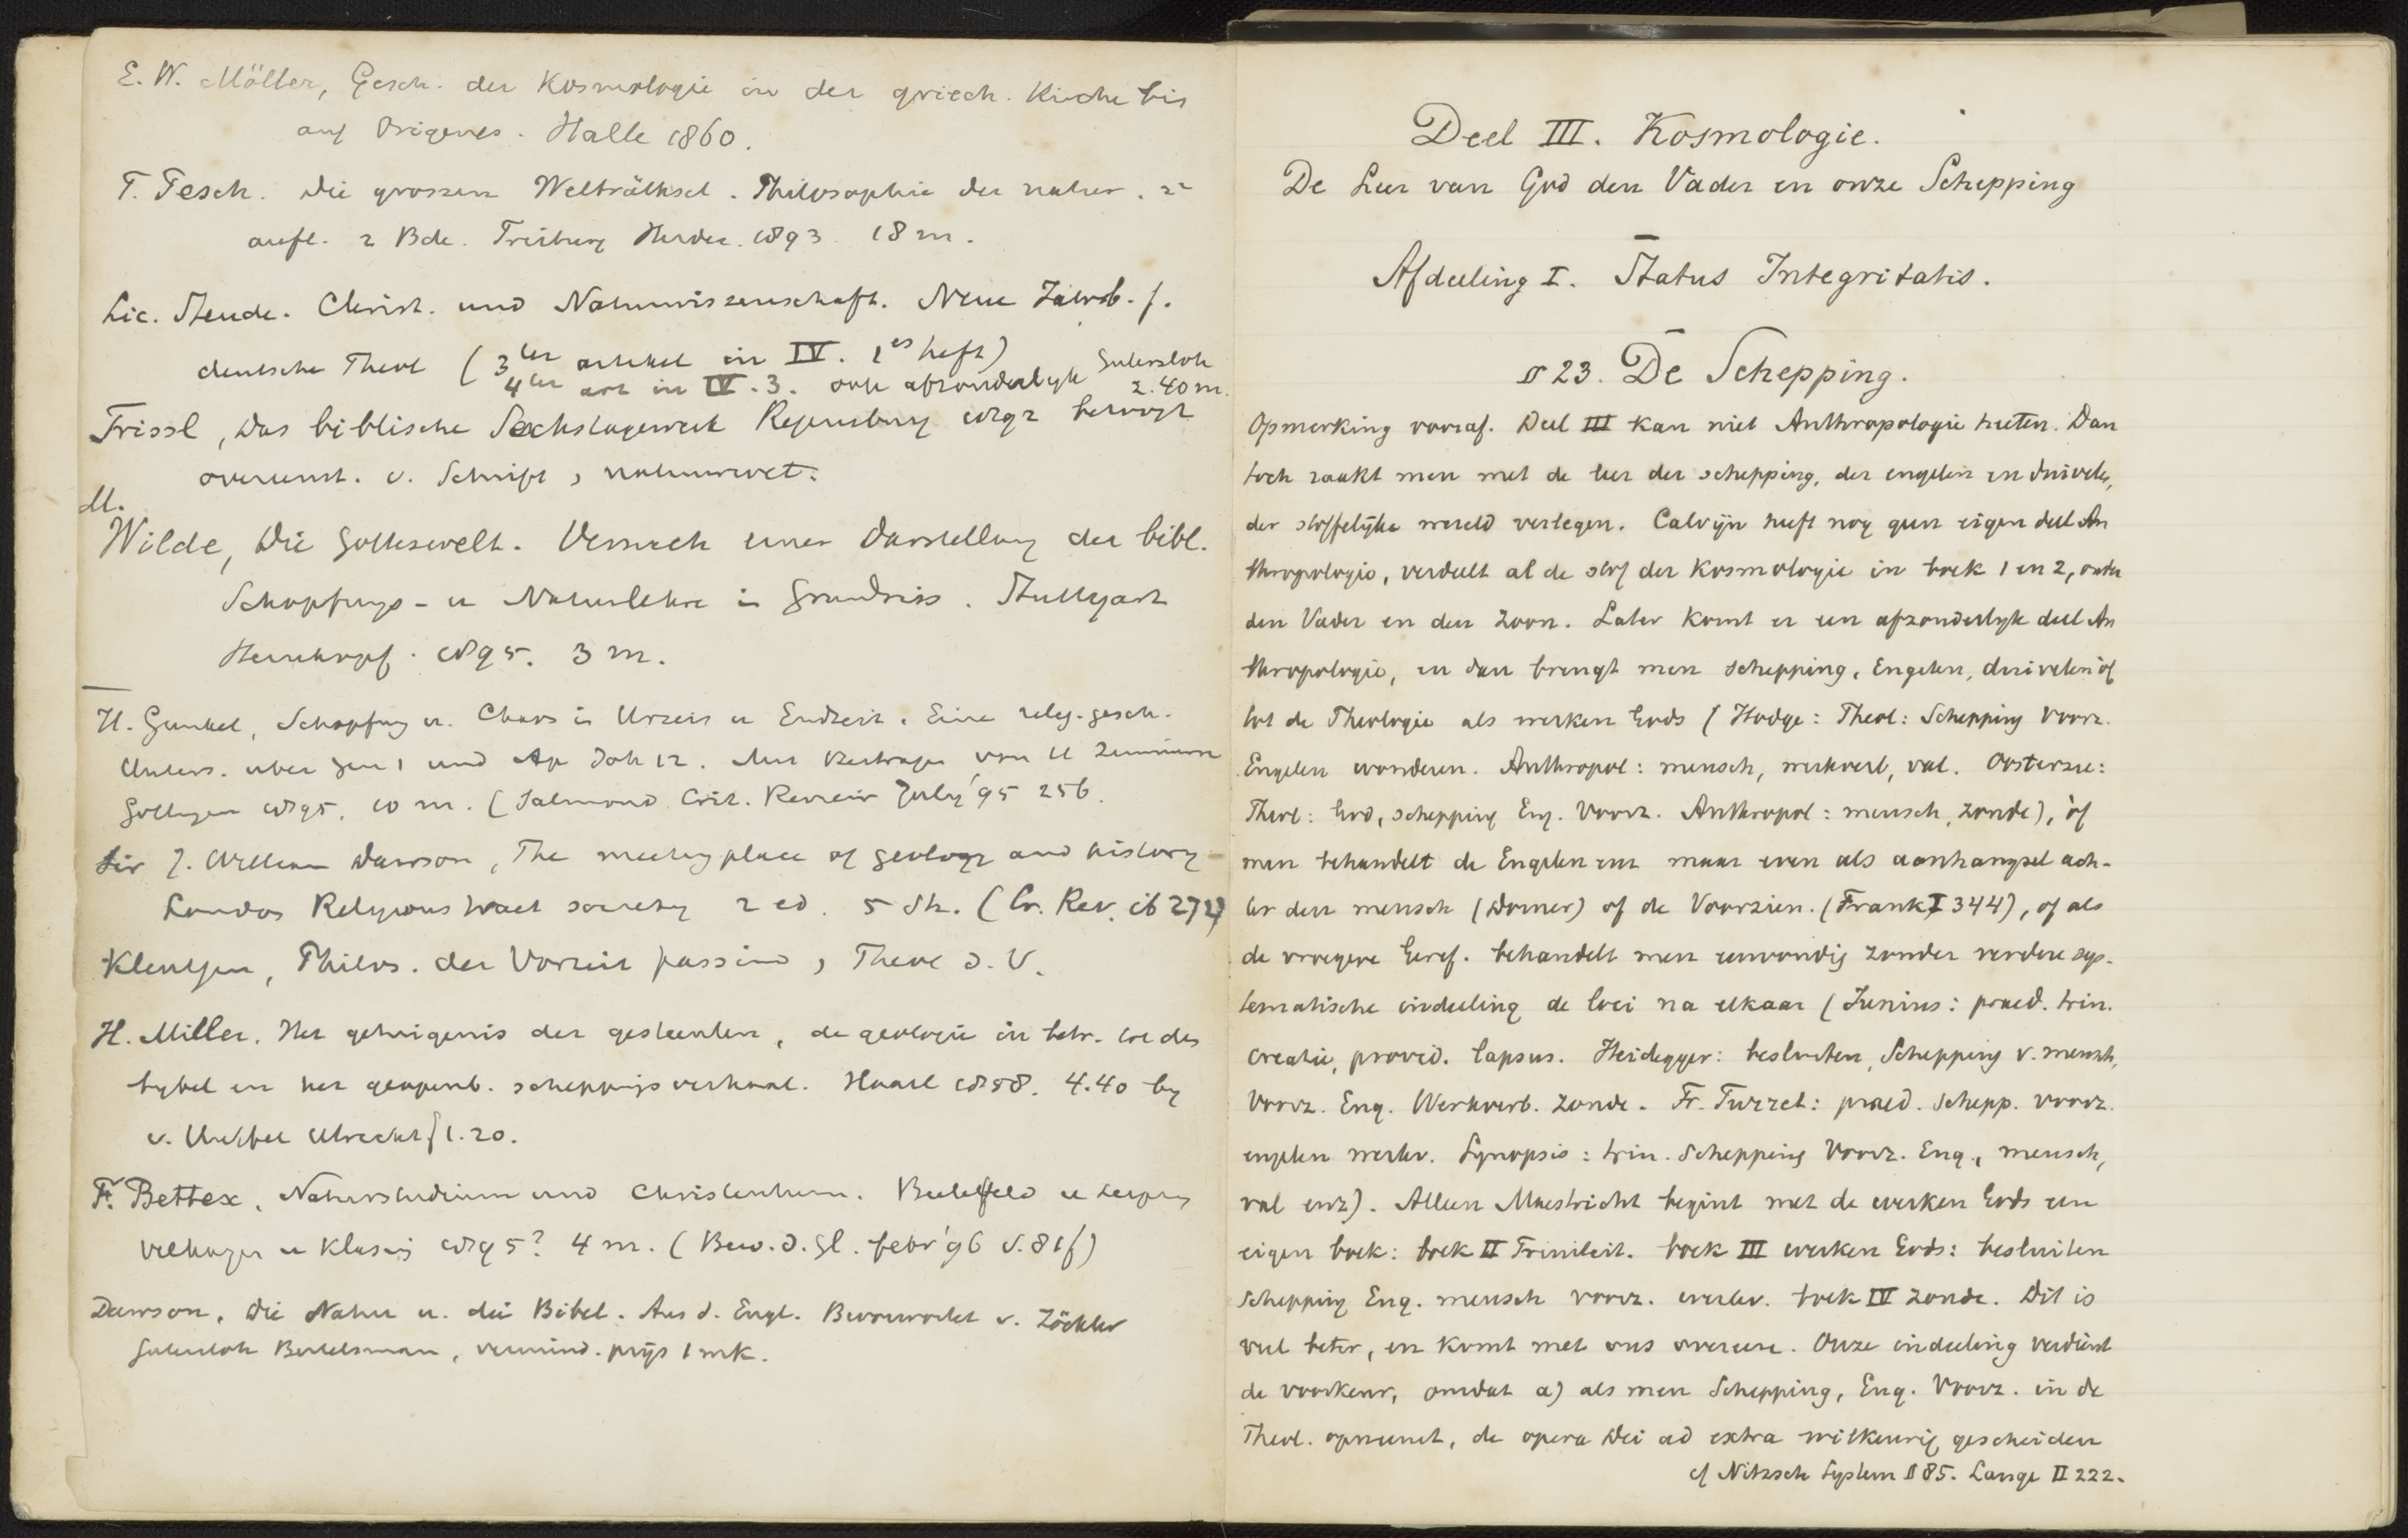 E. W. Möller, Gesch. der Kosmologie in der griech. Kirche bis
auf Origenes. Halle 1860.
T. Pesch. die grossen Welträthsel. Philosophie der natur. 2e
aufl. 2 Bde. Freiburg Herder. 1893. 18 m.
Lic. Steude. Christ. und Naturwissenschaft. Neue Jahrb. f.
deutsche Theol (3ter artikel in IV. 1es heft)
4ter art in IV. 3. ook afzonderlyk Gutersloh
2.40 m.
Trissl, das biblische Sechstagewerk Regensburg 1892 betoogt
overeenst. v. Schrift, natuurwet.
M.
Wilde, die Gotteswelt. Versuch einer Darstellung der bibl.
Schopfungs- u Naturlehre i Grundriss. Stuttgart
1895. 3 m.
H. Gunkel, Schopfung u. Chaos in Urzeit u Endzeit. Eine relig. gesch.
Unters. uber Gen 1 und Ap Joh 12. Mit Beitragen von H Zimmern
Gottingen 1895. 10 m. (Salmond Crit. Review July '95 256.
Sir J. William Dawson, The meeting place of geology and history
London Religious tract society 2 ed. 5 Sh. (Cr. Rev. ib 272)
Kleutgen, Philos. der Vorzeit passim, Theol d. V.
H. Miller. Het getuigenis der gesteenten, de geologie in betr. tot des
bybel en het geopenb. scheppingsverhaal. Haarl 1858. 4.40 by
v. Utrecht f 1.20.
F. Bettex. Naturstudium und Christenthum. Bielefeld u Leipzig
Velhagen u Klasing 1895? 4 m. (Bew. d. Gl. febr '96 S. 81f)
Dawson. die Natur u. die Bibel. Aus d. Engl. Bevorwortet v. Zöckler
Gutersloh Bertelsman, vermind. prijs 1 mk.
Deel III. Kosmologie.
De Leer van God den Vader en onze Schepping
Afdeeling I. Status Integritatis.
§ 23. De Schepping.
Opmerking vooraf. Deel III kan niet Anthropologie heeten. Dan
toch raakt men met de leer der schepping, der engelen en duivelen,
der stoffelijke wereld verlegen. Calvijn heeft nog geen eigen deel An
thropologie, verdeelt al de stof der Kosmologie in boek 1 en 2, onder
den Vader en den Zoon. Later komt er een afzonderlyk deel An
thropologie, en dan brengt men schepping, Engelen, duivelen òf
tot de Theologie als werken Gods (Hodge: Theol: Schepping Voorz.
Engelen wonderen. Anthropol: mensch, werkverb, val. Oosterzee:
Theol: God, schepping Eng. Voorz. Anthropol: mensch, zonde), òf
men behandelt de Engelen enz maar even als aanhangsel ach-
ter den mensch (Dorner) of de Voorzien. (Frank I 344), of als
de vroegere Geref. behandelt men eenvoudig zonder verdere sys-
tematische indeeling de loci na elkaar (Junius: praed. trin.
creatie, provid. lapsus. Heidegger: besluiten, Schepping v. mensch,
Voorz. Eng. Werkverb. Zonde. Fr. Turret: praed. schepp. voorz.
engelen werkv. Synopsis: trin. Schepping Voorz. Eng., mensch,
val enz). Alleen Maestricht begint met de werken Gods een
eigen boek: boek II Triniteit. boek III werken Gods: besluiten
schepping Eng. mensch voorz. werkv. boek IV zonde. Dit is
veel beter, en komt met ons overeen. Onze indeeling verdient
de voorkeur, omdat a) als men Schepping, Eng. Voorz. in de
Theol. opneemt, de opera Dei ad extra willkeurig gescheiden
cf Nitzsch System § 85. Lange II 222.